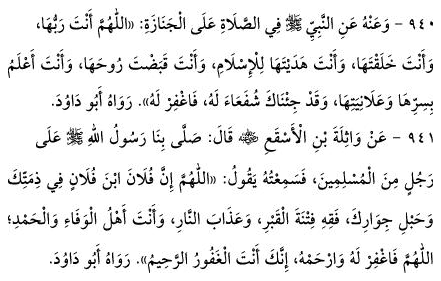 ٩٤٠ - وَعَنْهُ عَنِ النَّبِيِّ ﷺ فِي الصَّلَاةِ عَلَى الْجَنَازَةِ: «اللَّهُمَّ أَنْتَ رَبُّهَا،
وَأَنْتَ خَلَقْتَهَا، وَأَنْتَ هَدَيْتَهَا لِلْإِسْلَامِ، وَأَنْتَ قَبَضْتَ رُوحَهَا، وَأَنْتَ أَعْلَمُ
بِسِرِّهَا وَعَلَانِيَتِهَا، وَقَدْ جِئْنَاكَ شُفَعَاءَ لَهُ، فَاغْفِرْ لَهُ». رَوَاهُ أَبُو دَاوُدَ.
٩٤١ - عَنْ وَاثِلَةَ بْنِ الْأَسْقَعِ ﵁ قَالَ: صَلَّى بِنَا رَسُولُ اللهِ ﷺ عَلَى
رَجُلٍ مِنَ الْمُسْلِمِينَ، فَسَمِعْتُهُ يَقُولُ: «اللَّهُمَّ إِنَّ فُلَانَ ابْنَ فُلَانٍ فِي ذِمَّتِكَ
وَحَبْلِ جِوَارِكَ، فَقِهِ فِتْنَةَ الْقَبْرِ، وَعَذَابَ النَّارِ، وَأَنْتَ أَهْلُ الْوَفَاءِ وَالْحَمْدِ؛
اللَّهُمَّ فَاغْفِرْ لَهُ وَارْحَمْهُ، إِنَّكَ أَنْتَ الْغَفُورُ الرَّحِيمُ». رَوَاهُ أَبُو دَاوُدَ.